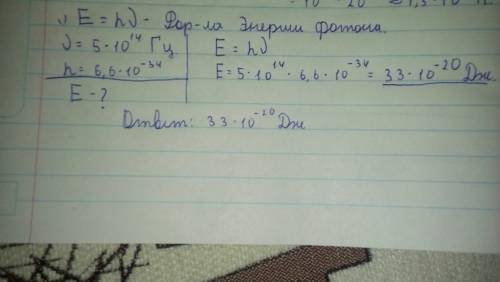 1) E = hν - Фор-ла Энергии фотона.
ν = 5·10¹⁴ Гц
h = 6,6·10⁻³⁴
E - ?
E = hν
E = 5·10¹⁴ · 6,6·10⁻³⁴ = 33·10⁻²⁰ Дж
Ответ: 33·10⁻²⁰ Дж